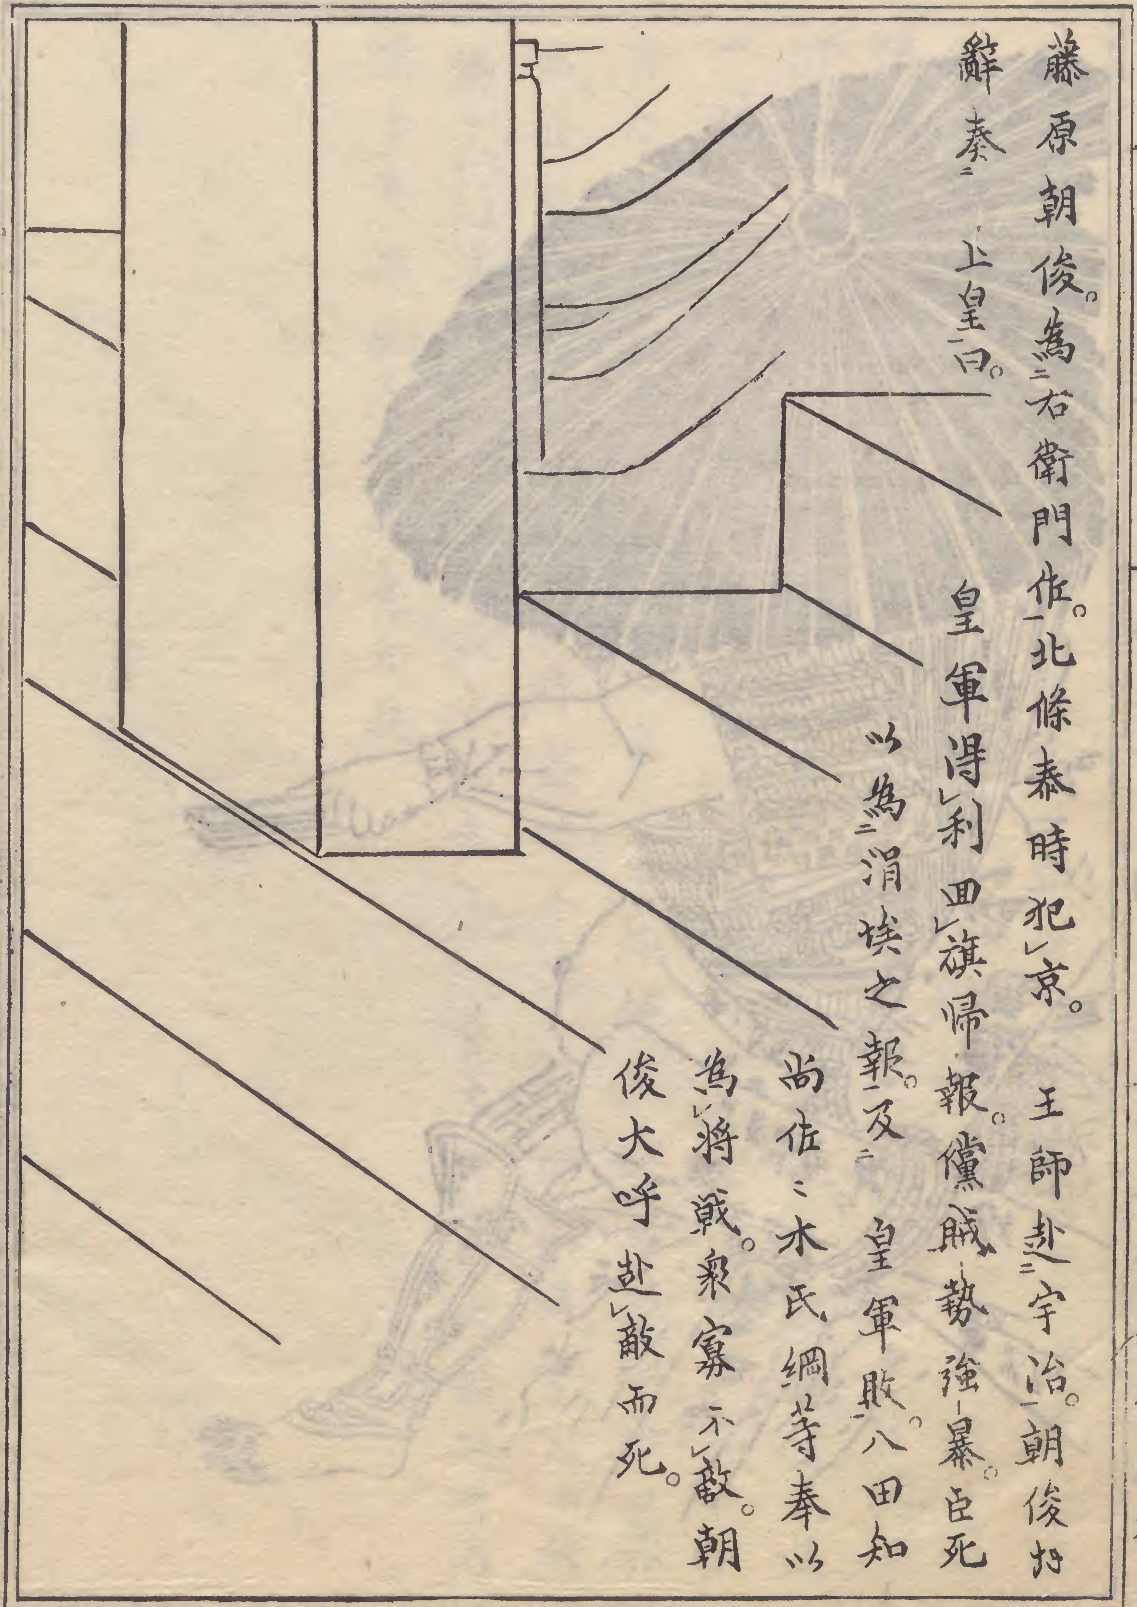 藤原朝俊。為右衛門佐。北條泰時犯京。　王師赴宇治。朝俊拝
辭奏　上皇曰。　皇軍得利囬旗帰報。儻賊勢強暴。臣死
以為涓埃之報。及　皇軍敗。八田知
尚佐〻木氏綱等奉以
為将戦。衆寡不敵。朝
俊大呼赴敵而死。